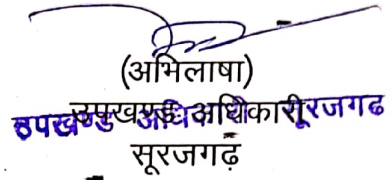 (अभिलाषा)
उपखण्ड अधिकारी
उपखण्ड अधिकारी सूरजगढ
सूरजगढ़